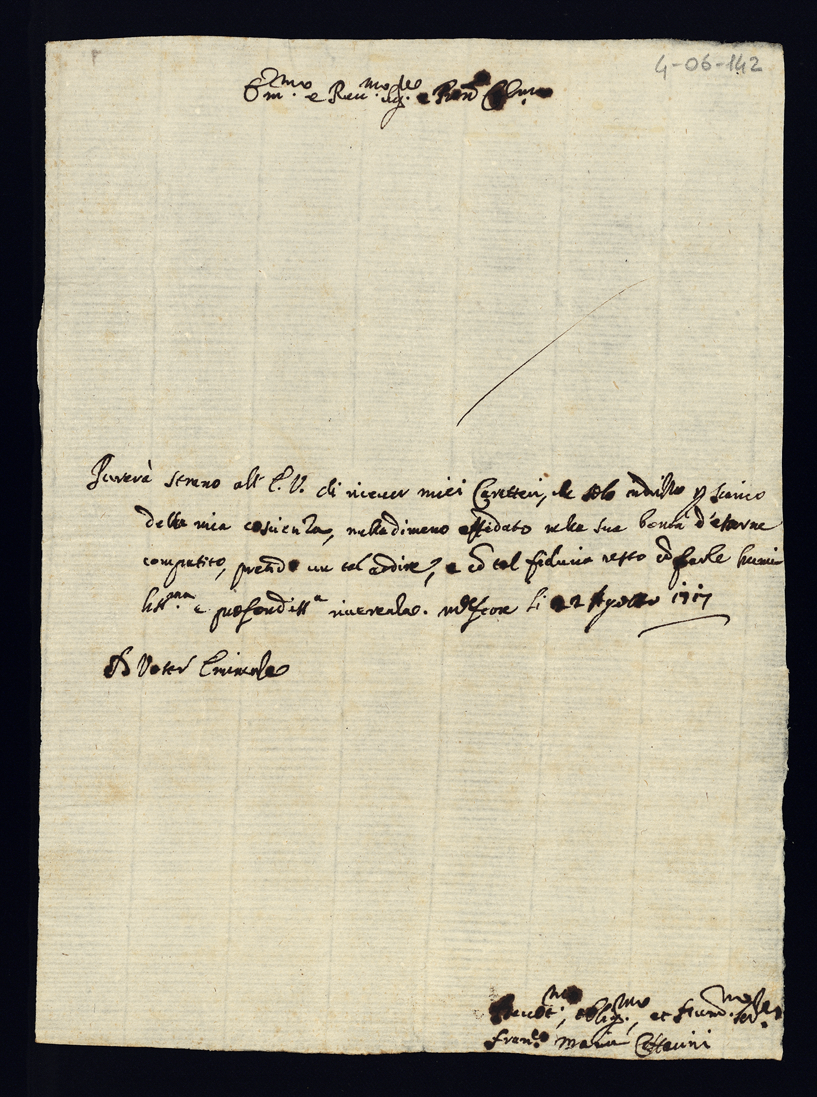 4-06-142
Em.mo e Rev.mo Sig.re e Pron Col.mo
Parerà strano all' E. V. di ricever miei Caratteri, che solo indrizzo p scarico
della mia coscienza, nulladimeno affidato nella sua bontà d'esserne
compatito, prendo un tal ardire, e cō tal fiducia resto cō farle humi-
liss.ma e profondiss.a riverenza. li 22 Agosto 1717
Di Vostra Eminenza
Devot.mo, oblig.mo, et Hum.mo Ser.re
Fran.co Maria